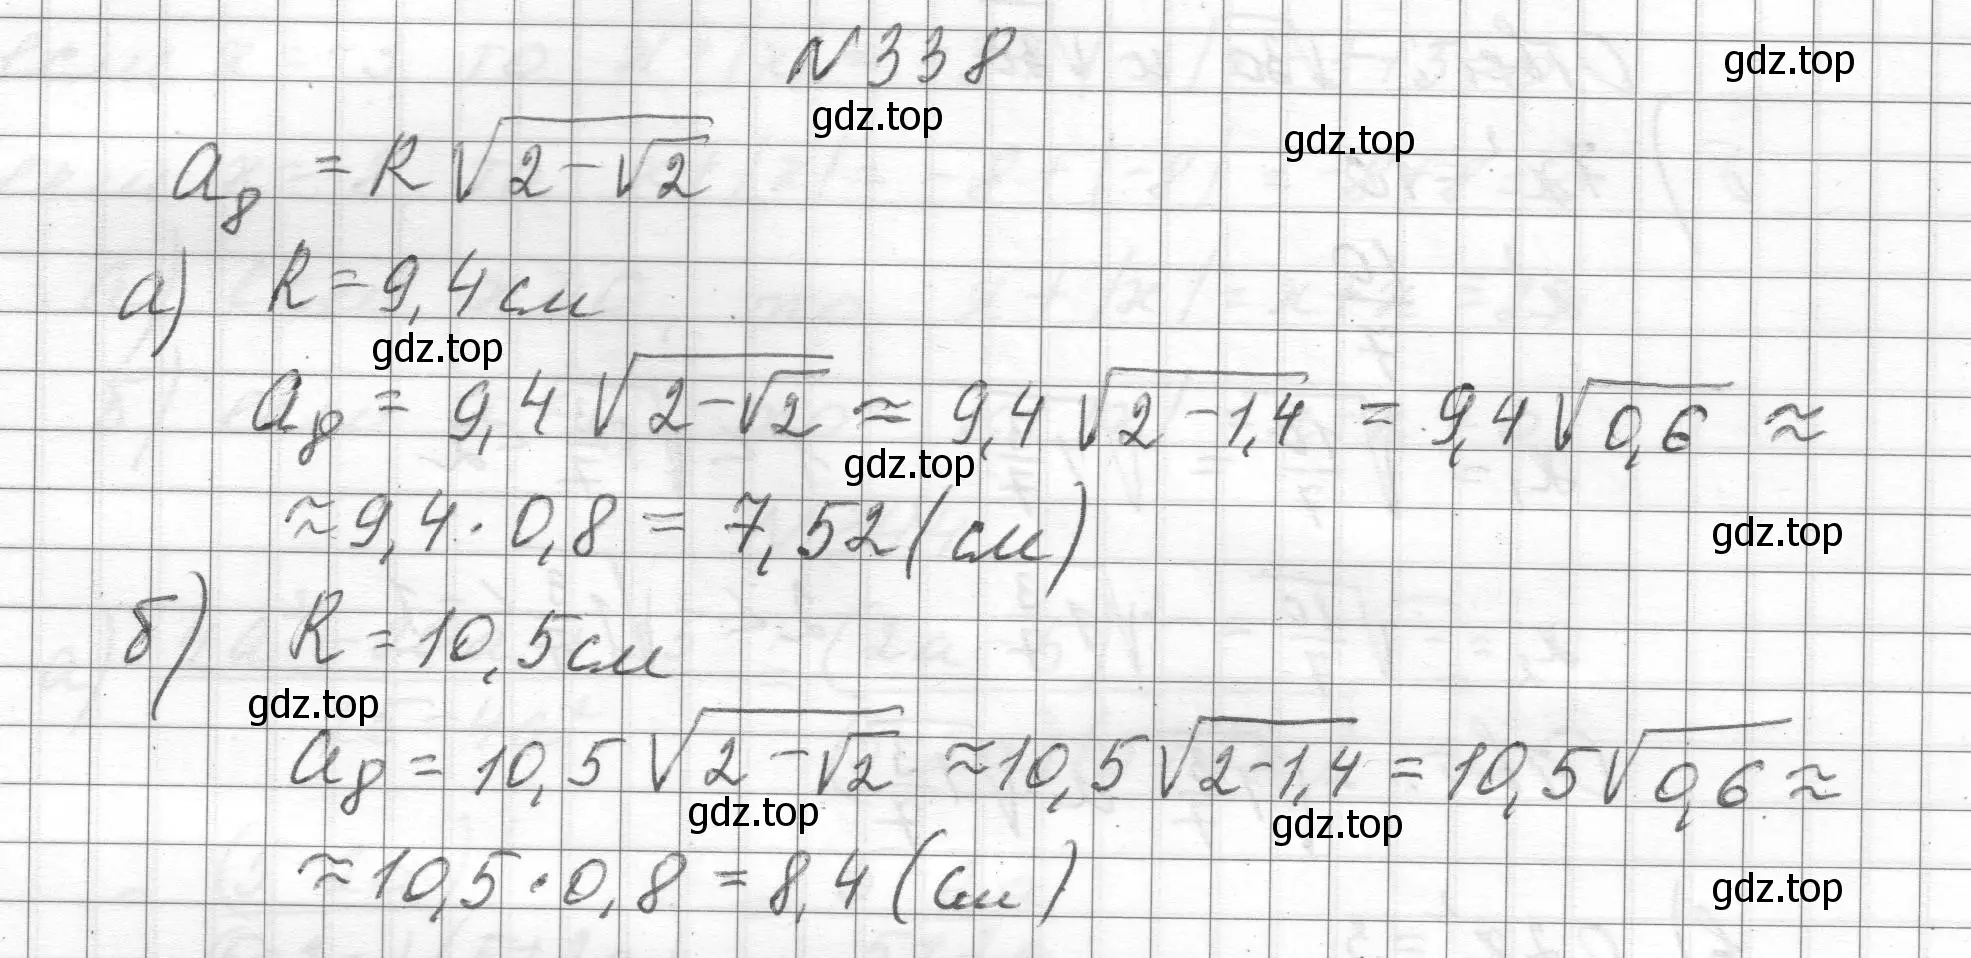 №338
gdz.top
gdz.top
gdz.top
a₈ = R√(2-√2)
а) R = 9,4 см
gdz.top
a₈ = 9,4√(2-√2) ≈ 9,4√(2-1,4) = 9,4√0,6 ≈
gdz.top
≈ 9,4 · 0,8 = 7,52 (см)
gdz.top
б) R = 10,5 см
gdz.top
a₈ = 10,5√(2-√2) ≈ 10,5√(2-1,4) = 10,5√0,6 ≈
gdz.top
gdz.top
≈ 10,5 · 0,8 = 8,4 (см)
gdz.top